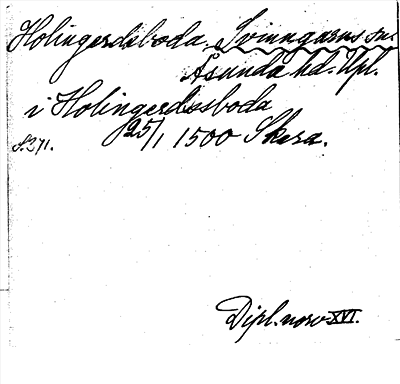 Holingerdsboda. Svinngarns sn.
Åsunda hd. Upl.
i Holingerdsboda
25/1 1500 Skera.
S. 271.
Dipl. norv. XVI.